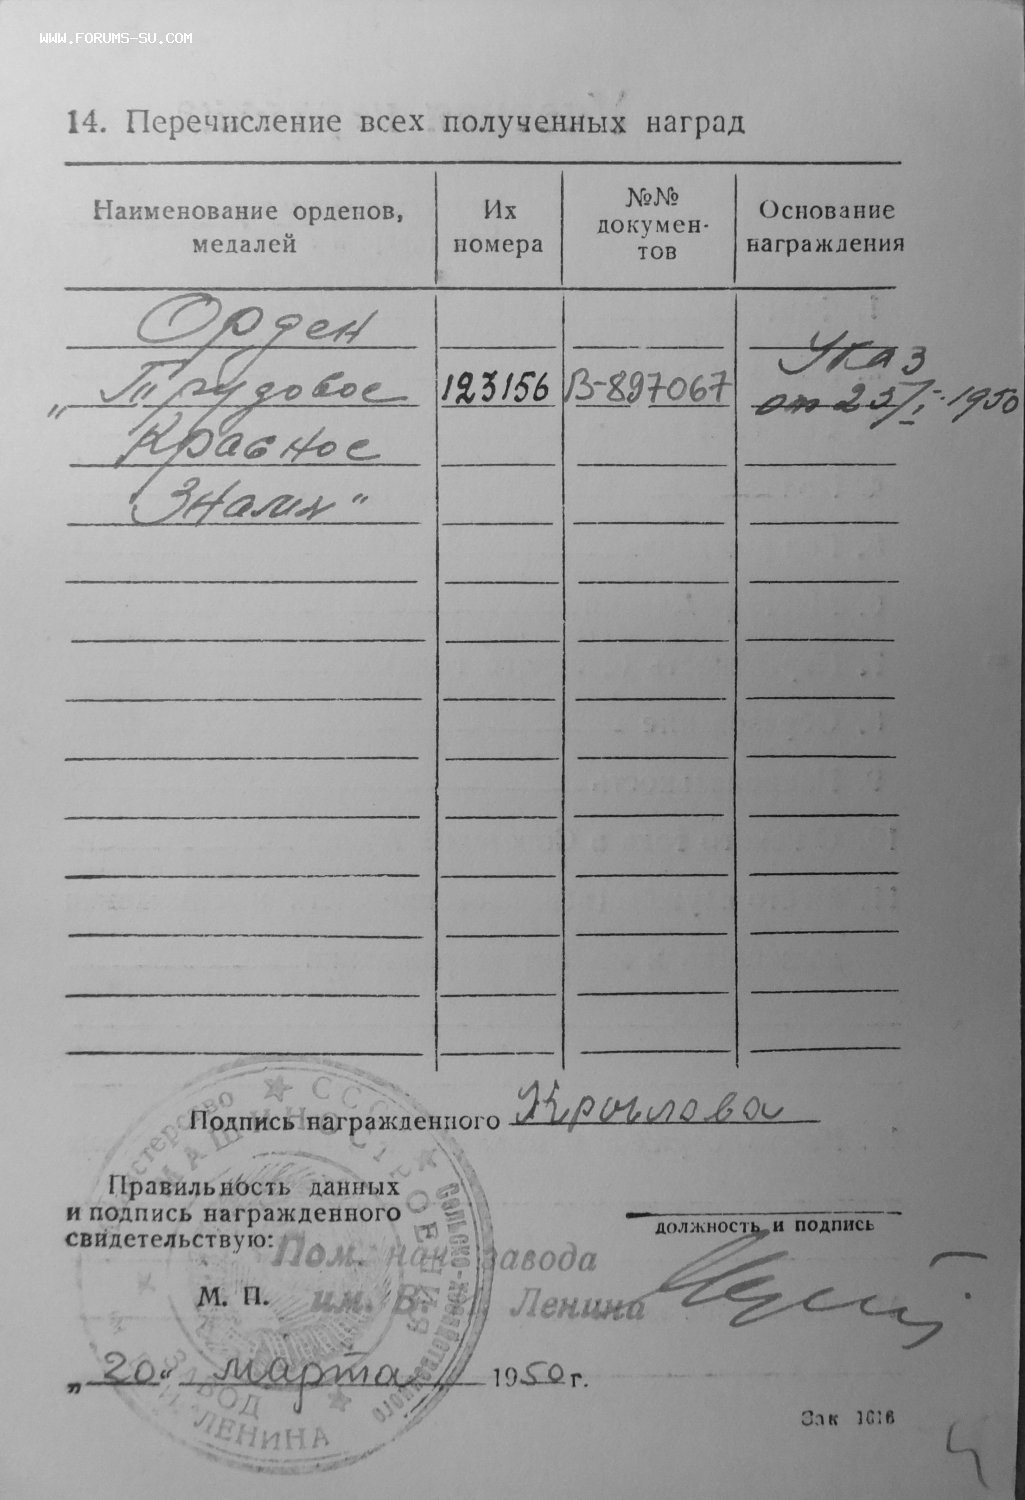 WWW.FORUMS-SU.COM
14. Перечисление всех полученных наград
Наименование орденов,
медалей
Их
номера
№№
докумен-
тов
Основание
награждения
Орден
„Трудовое
Красное
Знамя"
123156
В-897067
Указ
от 25/I-1950
Подпись награжденного Крылова
Правильность данных
и подпись награжденного
свидетельствую:
должность и подпись
Пом. нач. завода
им. В. И. Ленина
М. П.
„20" марта 1950 г.
Зак 1616
Министерство
Сельско-хозяйственного
МАШИНОСТРОЕНИЯ
СССР
ЗАВОД
ЛЕНИНА